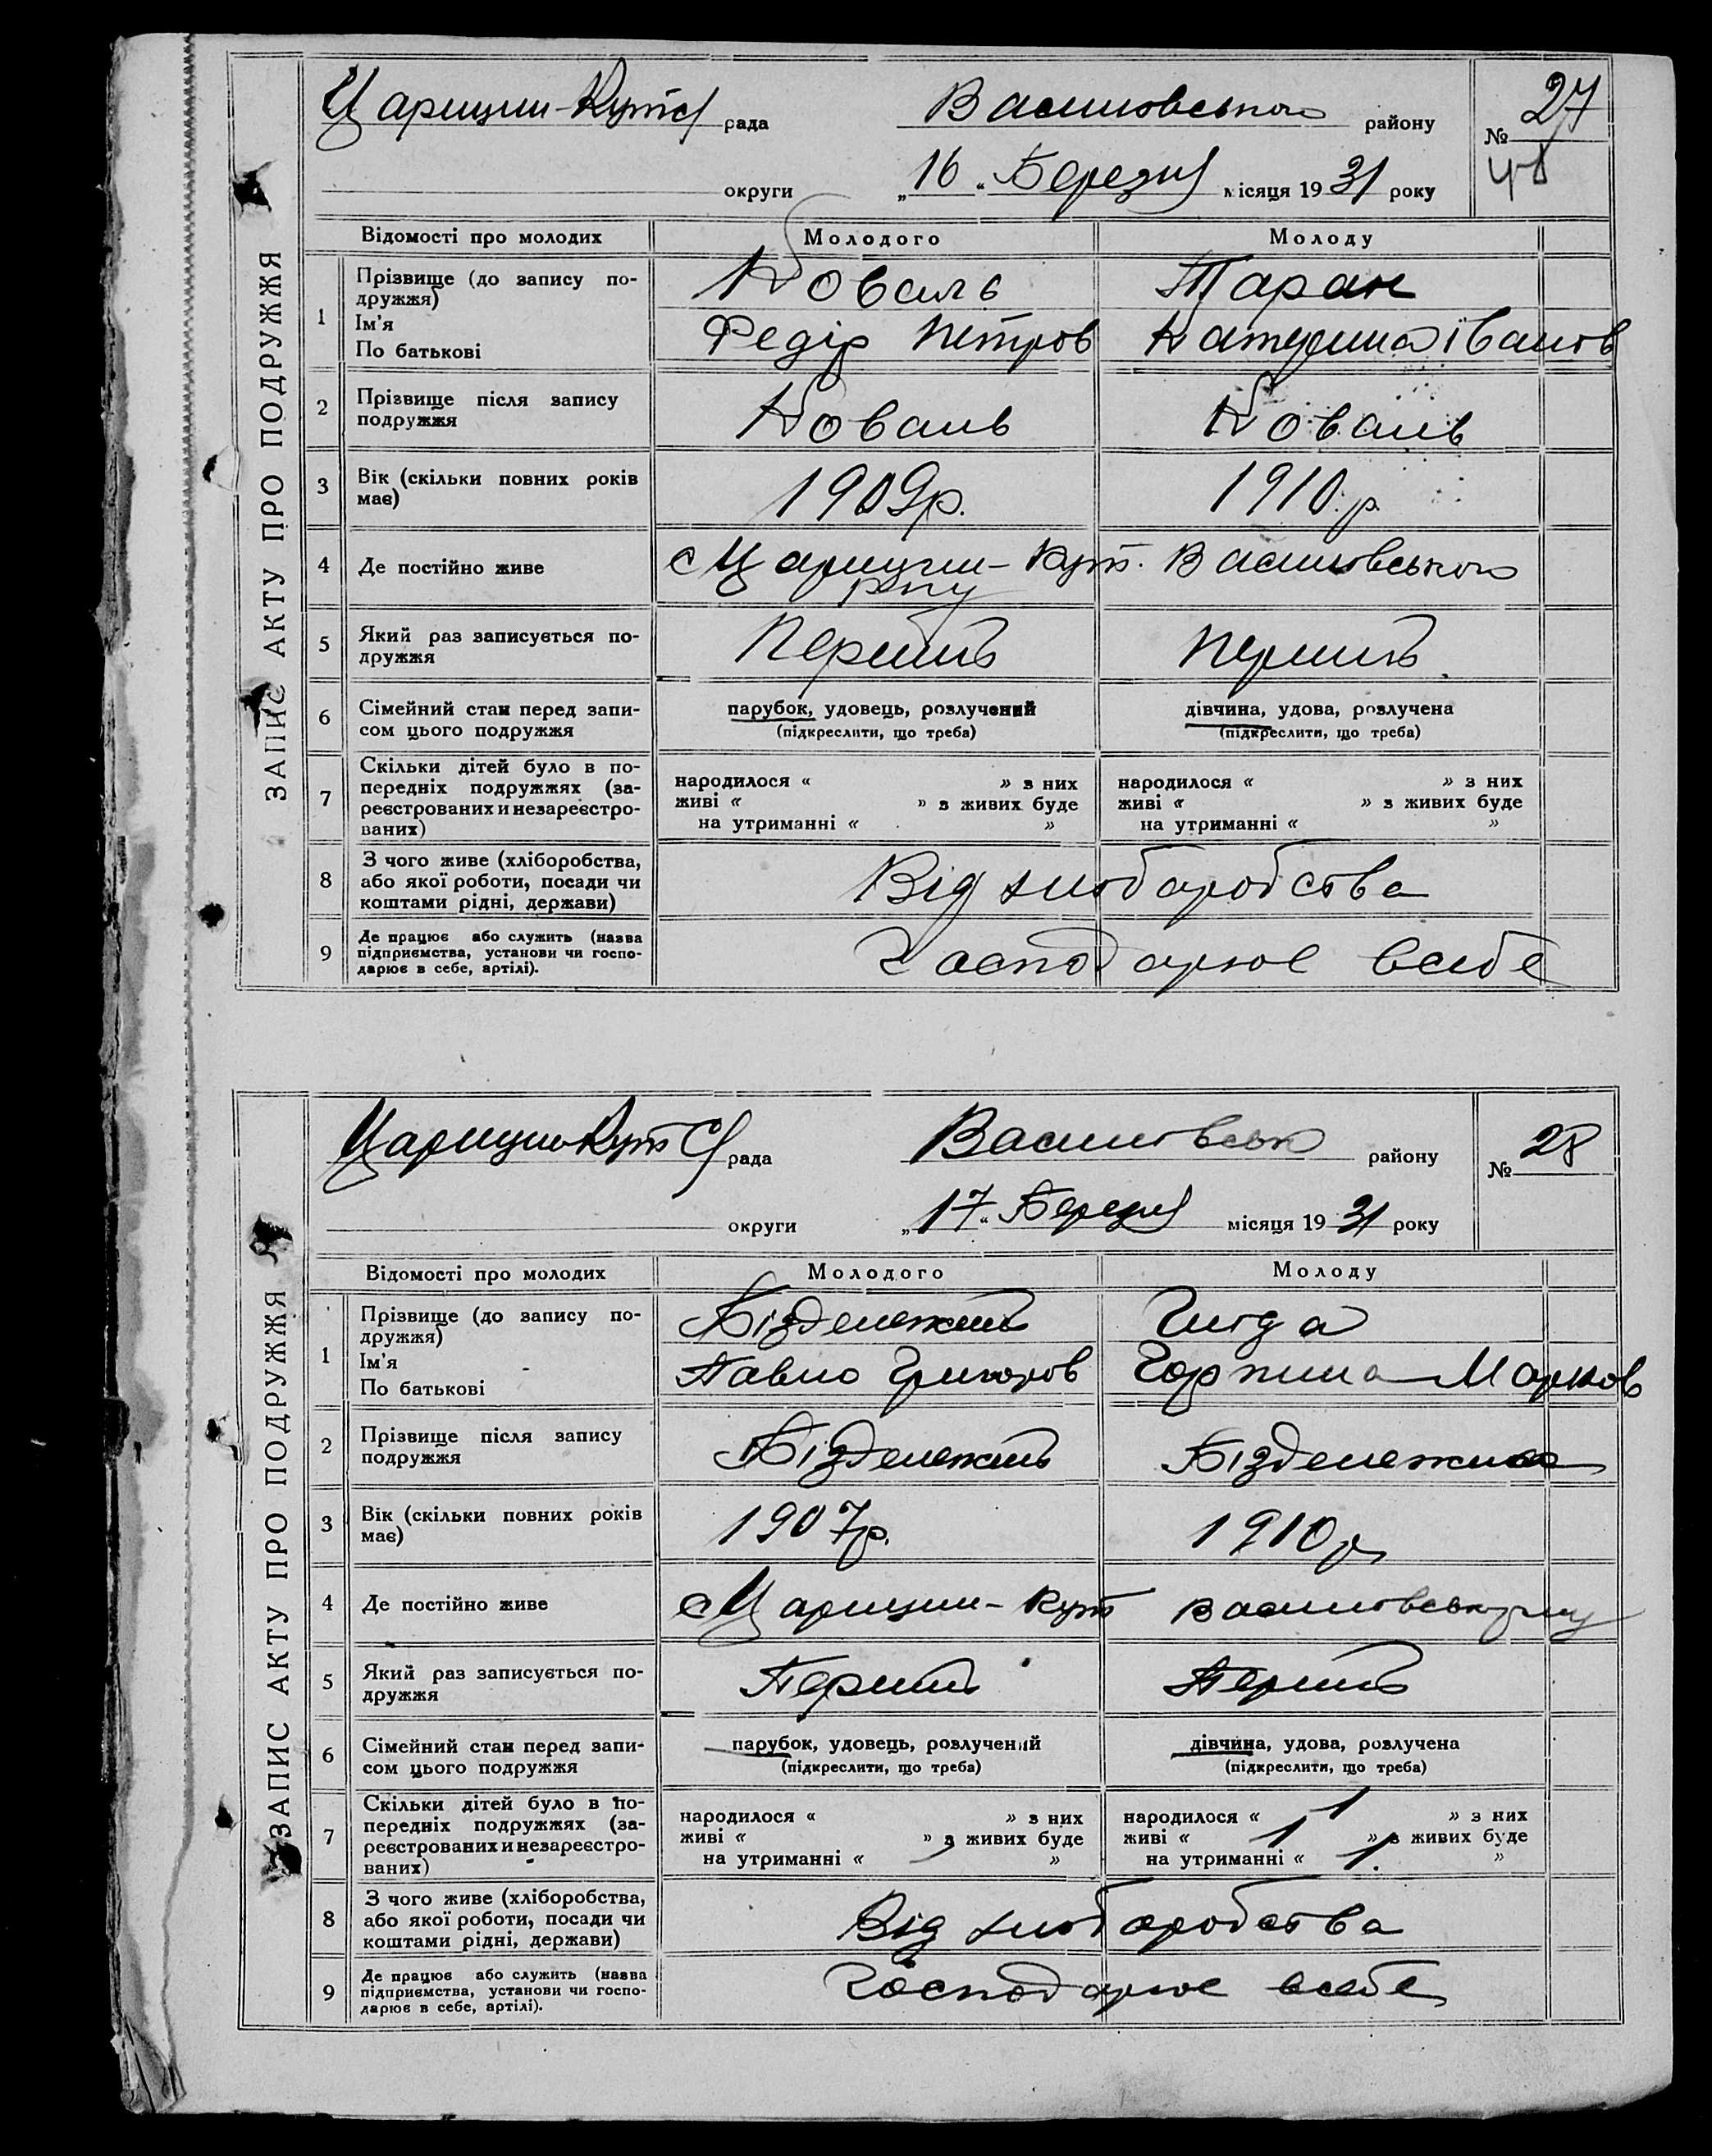 ЗАПИС АКТУ ПРО ПОДРУЖЖЯ
Царицин-Кутс рада Василовського району № 27
48
округи „16“ Березня місяця 1931 року
Відомості про молодих Молодого Молоду
1 Прізвище (до запису по-
дружжя) Коваль Таран
Ім'я
По батькові Федір Петров Катерина Іванов
2 Прізвище після запису
подружжя Коваль Коваль
3 Вік (скільки повних років
має) 1909р. 1910.р.
4 Де постійно живе с Царицин-Кут. Василовського
р-ну
5 Який раз записується по-
дружжя Перший Перший
6 Сімейний стан перед запи-
сом цього подружжя парубок, удовець, розлучений дівчина, удова, розлучена
(підкреслити, що треба) (підкреслити, що треба)
7 Скільки дітей було в по-
передніх подружжях (за-
реєстрованих и незареєстро-
ваних)
народилося « » з них народилося « » з них
живі « » з живих буде живі « » з живих буде
на утриманні « » на утриманні « »
8 З чого живе (хліборобства,
або якої роботи, посади чи
коштами рідні, держави) Від хліборобства
9 Де працює або служить (назва
підприємства, установи чи госпо-
дарює в себе, артілі). Господарює всебе
ЗАПИС АКТУ ПРО ПОДРУЖЖЯ
Царицин-Кут С рада Василовськ району № 28
округи „17“ Березня місяця 1931 року
Відомості про молодих Молодого Молоду
1 Прізвище (до запису по-
дружжя) Бізденежний Гнида
Ім'я
По батькові Павло Григоров Горпина Марков
2 Прізвище після запису
подружжя Бізденежний Бізденежная
3 Вік (скільки повних років
має) 1907р. 1910р
4 Де постійно живе с Царицин-Кут Василовськ р-ну
5 Який раз записується по-
дружжя Перший Перший
6 Сімейний стан перед запи-
сом цього подружжя парубок, удовець, розлучений дівчина, удова, розлучена
(підкреслити, що треба) (підкреслити, що треба)
7 Скільки дітей було в по-
передніх подружжях (за-
реєстрованих и незареєстро-
ваних)
народилося « » з них народилося « 1 » з них
живі « » з живих буде живі « 1 » з живих буде
на утриманні « » на утриманні « 1. »
8 З чого живе (хліборобства,
або якої роботи, посади чи
коштами рідні, держави) Від хліборобства
9 Де працює або служить (назва
підприємства, установи чи госпо-
дарює в себе, артілі). Господарює всебе